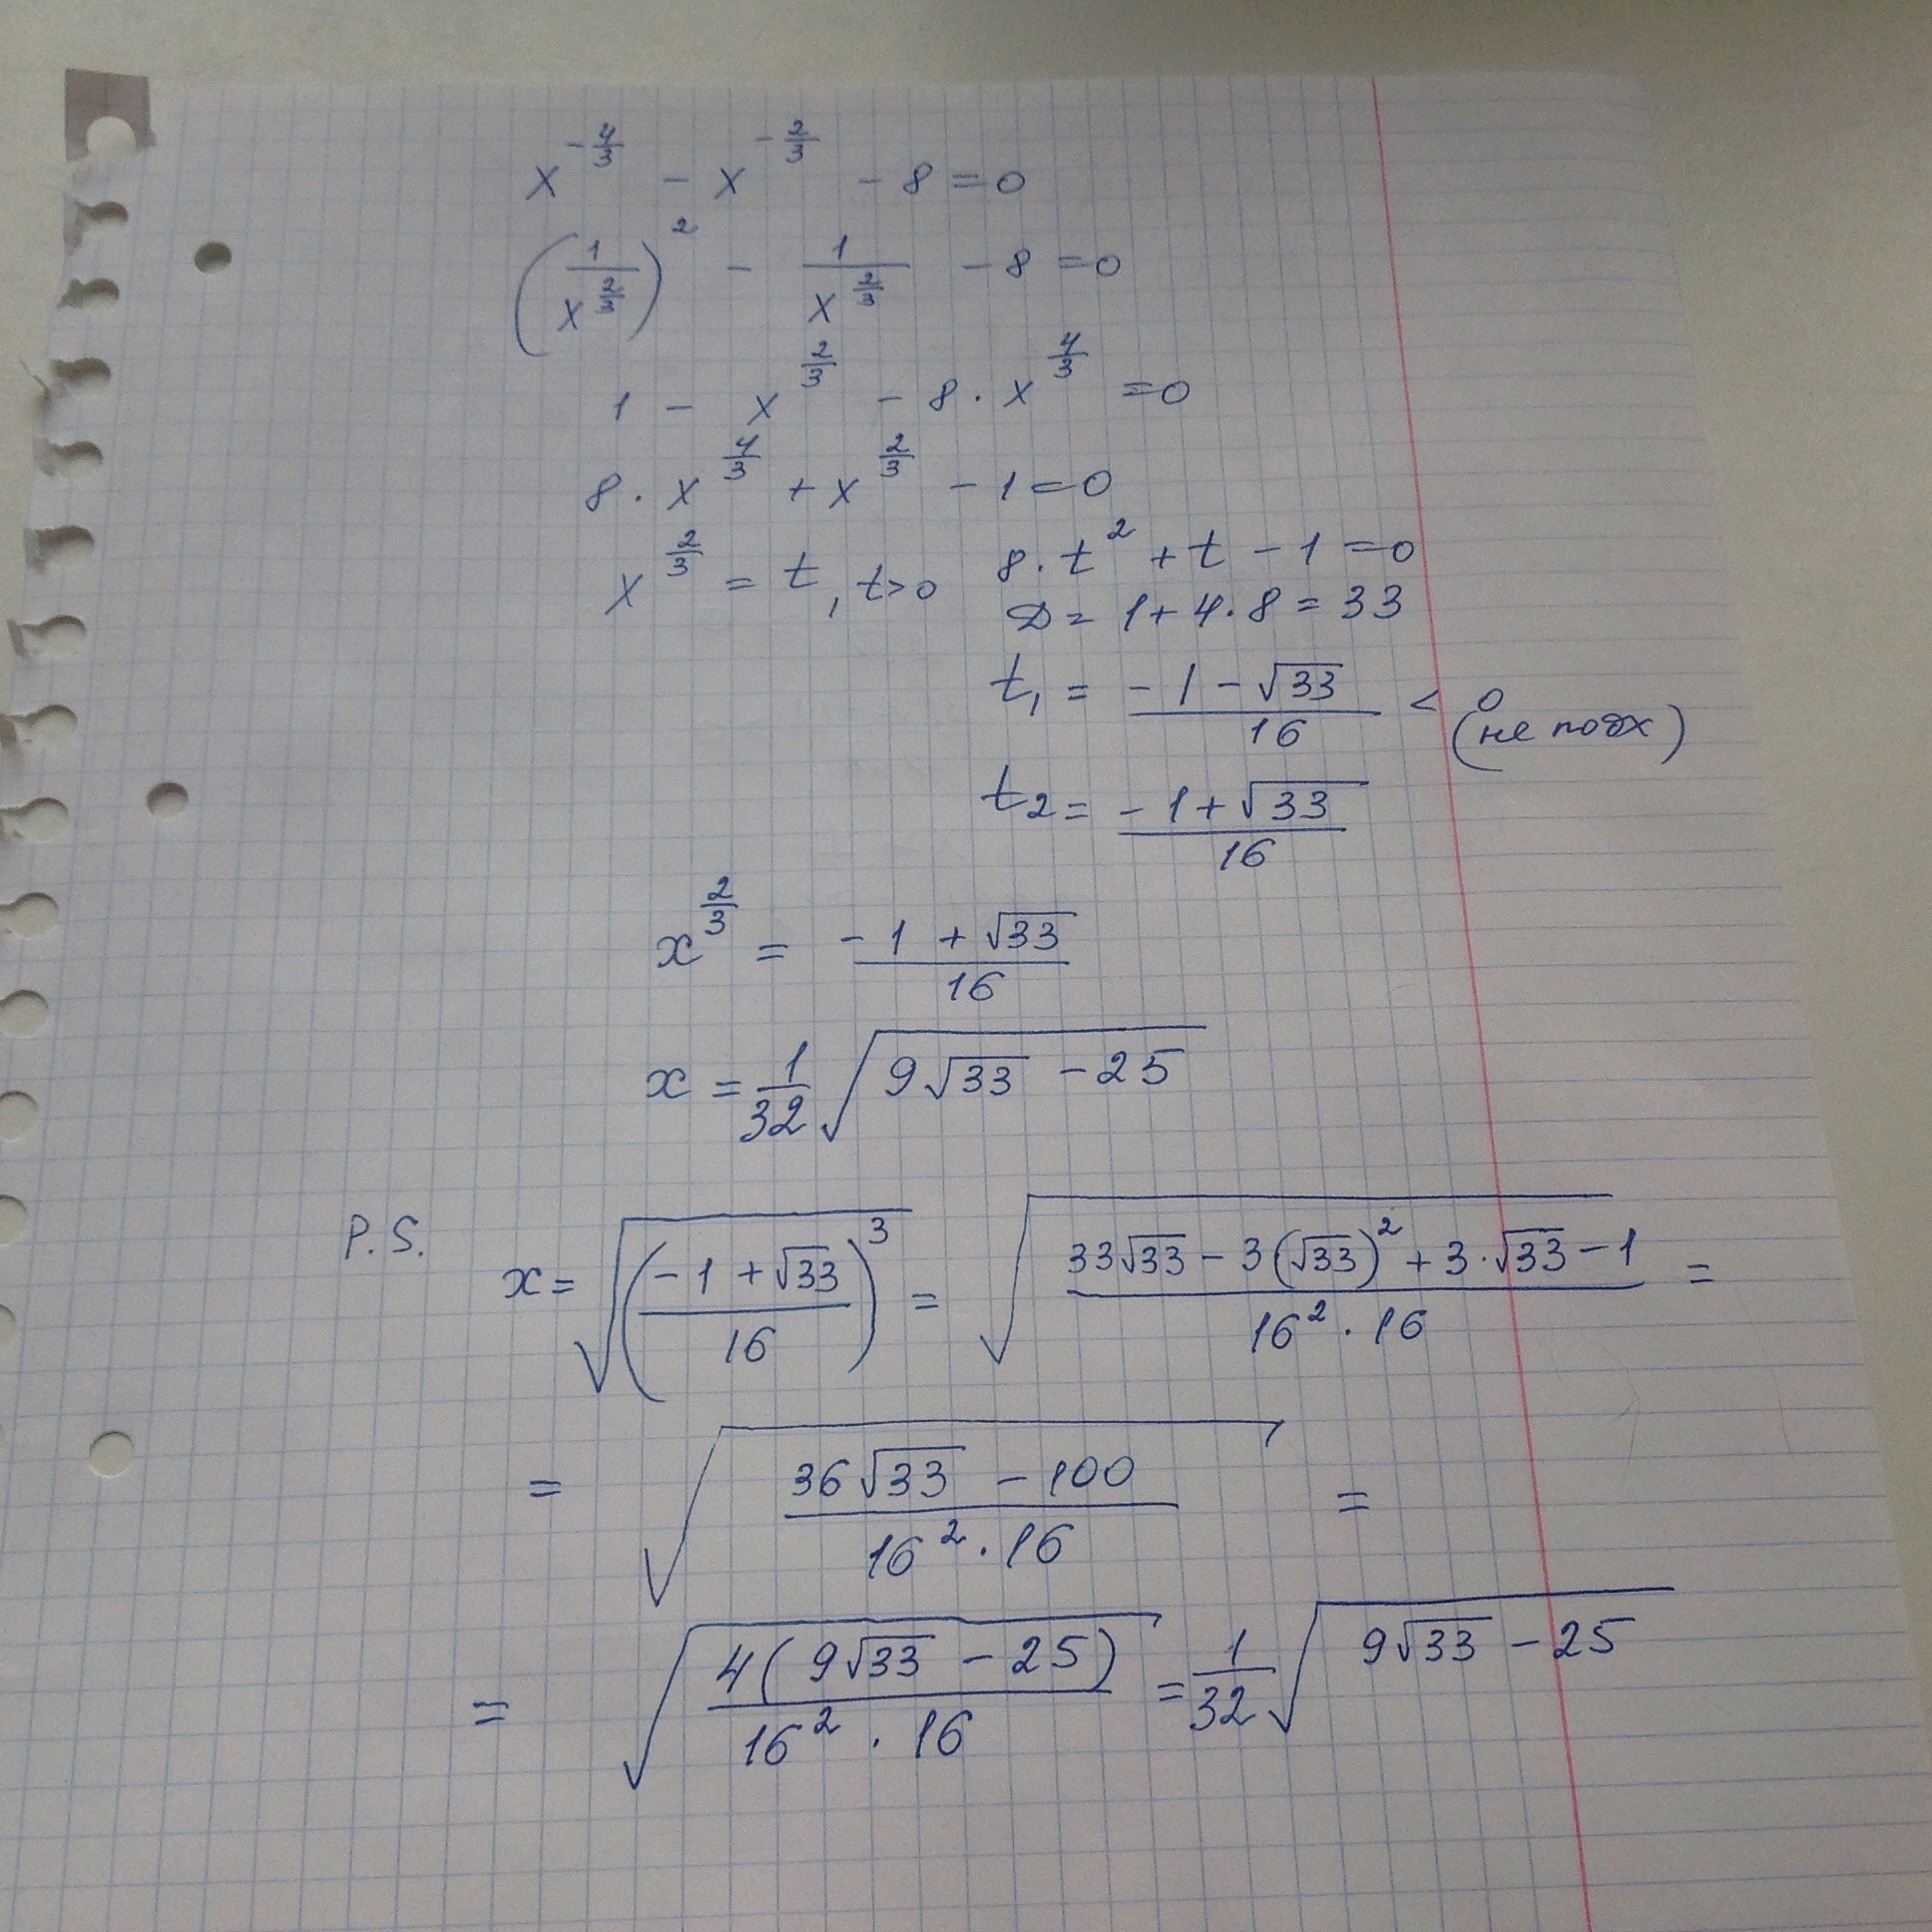 x^{-\frac{4}{3}} - x^{-\frac{2}{3}} - 8 = 0
\left(\frac{1}{x^{\frac{2}{3}}}\right)^2 - \frac{1}{x^{\frac{2}{3}}} - 8 = 0
1 - x^{\frac{2}{3}} - 8 \cdot x^{\frac{4}{3}} = 0
8 \cdot x^{\frac{4}{3}} + x^{\frac{2}{3}} - 1 = 0
x^{\frac{2}{3}} = t, t>0 8 \cdot t^2 + t - 1 = 0
D = 1 + 4 \cdot 8 = 33
t_1 = \frac{-1 - \sqrt{33}}{16} < 0 (не подх)
t_2 = \frac{-1 + \sqrt{33}}{16}
x^{\frac{2}{3}} = \frac{-1 + \sqrt{33}}{16}
x = \frac{1}{32} \sqrt{9\sqrt{33} - 25}
P.S. x = \sqrt{\left(\frac{-1 + \sqrt{33}}{16}\right)^3} = \sqrt{\frac{33\sqrt{33} - 3(\sqrt{33})^2 + 3 \cdot \sqrt{33} - 1}{16^2 \cdot 16}} =
= \sqrt{\frac{36\sqrt{33} - 100}{16^2 \cdot 16}} =
= \sqrt{\frac{4(9\sqrt{33} - 25)}{16^2 \cdot 16}} = \frac{1}{32} \sqrt{9\sqrt{33} - 25}